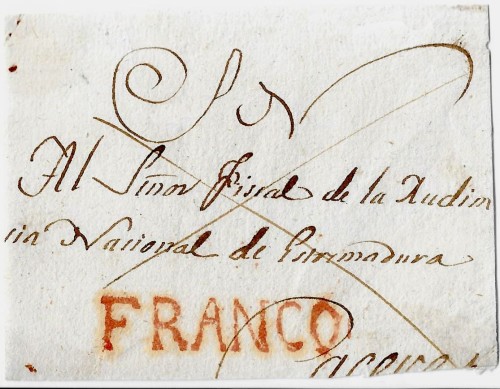 S N
Al Señor Fiscal de la Audien
cia Nacional de Estremadura
FRANCO
Caceres